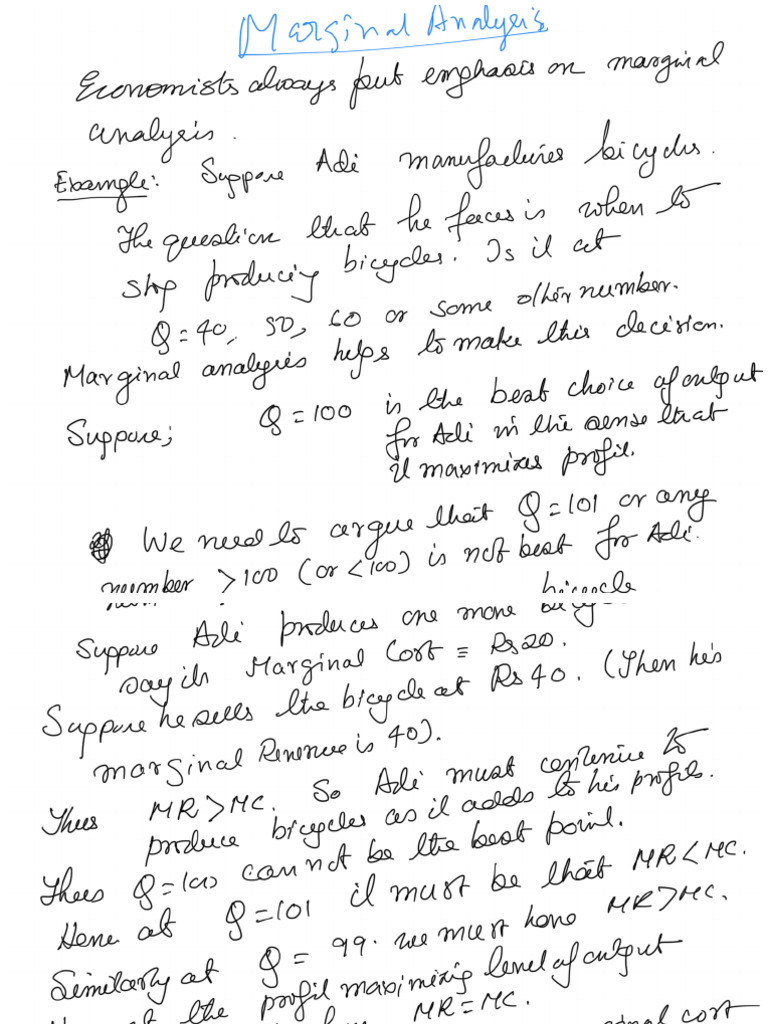 Marginal Analysis
Economists always put emphasis on marginal
analysis.
Example: Suppose Adi manufactures bicycles.
The question that he faces is when to
stop producing bicycles. Is it at
Q = 40, 50, 60 or some other number.
Marginal analysis helps to make this decision.
Suppose; Q = 100 is the best choice of output
for Adi in the sense that
it maximizes profit.
We need to argue that Q = 101 or any
number > 100 (or < 100) is not best for Adi.
Suppose Adi produces one more bicycle
say its Marginal Cost = Rs 20.
Suppose he sells the bicycle at Rs 40. (Then his
marginal Revenue is 40).
Thus MR > MC. So Adi must continue to
produce bicycles as it adds to his profit.
Thus Q = 100 cannot be the best point.
Hene at Q = 101 it must be that MR < MC.
Similarly at Q = 99. we must have MR > MC.
at the profit maximizing level of output
MR = MC.
cost